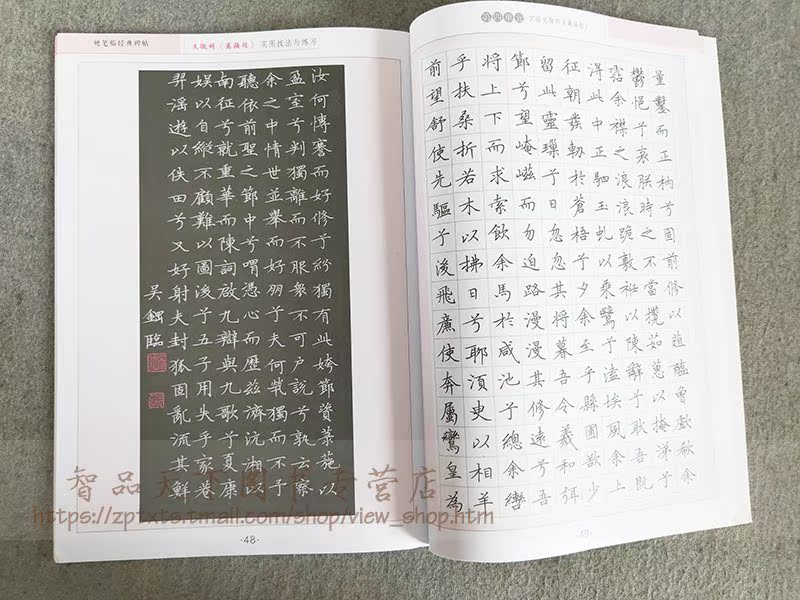 硬笔临经典碑帖
文徵明《離騷經》实用技法与练习
汝何博謇而好修兮紛獨有此姱節資菉葹以
盈室兮判獨離而不服衆不可户說兮孰云察
余之中情世並舉而好朋兮夫何煢獨而不予
聽依前聖之節中兮喟憑心而歷茲濟沅湘以
南征兮就重華而陳詞啟九辯與九歌兮夏康
娛以自縱不顧難以圖後兮五子用失乎家巷
羿淫遊以佚田兮又好射夫封狐固亂流其鮮
吴 臨
·48·
第四单元
量鑿而正枘兮固前修以菹醢曾歔欷余
鬱悒兮哀朕時之不當攬茹蕙以掩涕兮
霑余襟之浪浪跪敷衽以陳辭兮耿吾既
得此中正駟玉虬以乘鷖兮溘埃風余上
征朝發軔於蒼梧兮夕余至乎縣圃欲少
留此靈瑣兮日忽忽其將暮吾令羲和弭
節兮望崦嵫而勿迫路漫漫其修遠兮吾
將上下而求索飲余馬於咸池兮總余轡
乎扶桑折若木以拂日兮聊須臾以相羊
前望舒使先驅兮後飛廉使奔屬鸞皇為
·49·
智品天下图书专营店
https://zptxts.tmall.com/shop/view_shop.htm